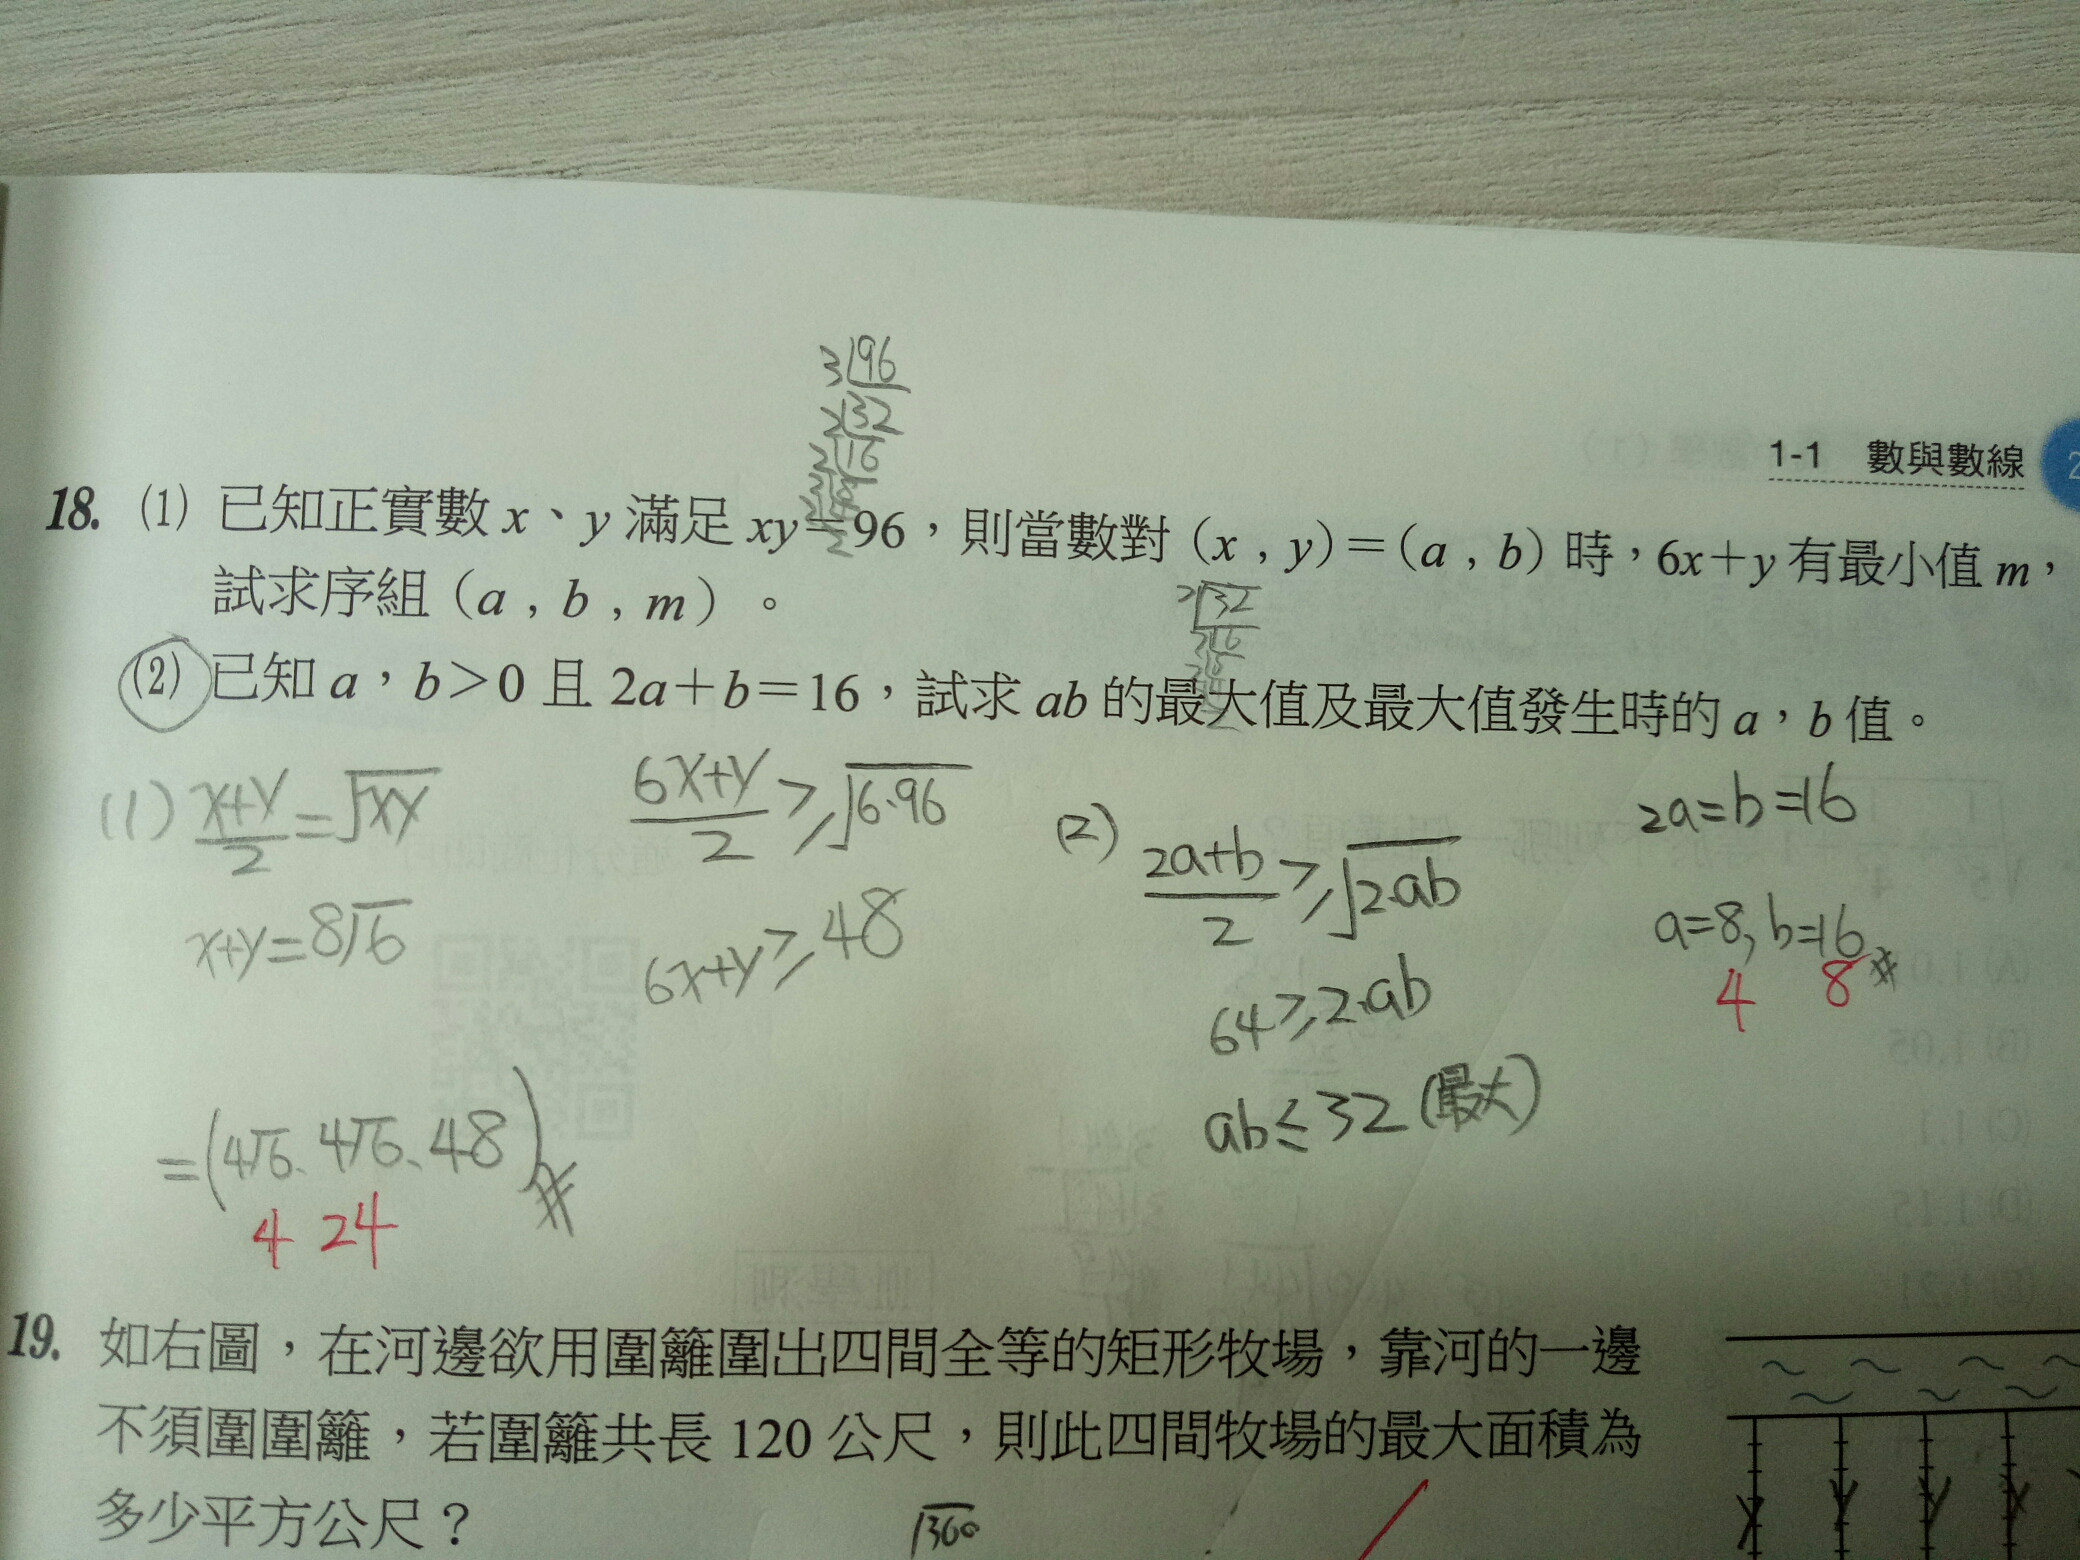 3 96
2 32
2 16
1-1 數與數線
18. (1) 已知正實數 x、y 滿足 xy=96,則當數對 (x , y)=(a , b) 時,6x+y 有最小值 m,
試求序組 (a , b , m) 。
2 32
2 16
(2) 已知 a,b>0 且 2a+b=16,試求 ab 的最大值及最大值發生時的 a,b 值。
(1) x+y/2=√xy
x+y=8√6
6x+y/2≥√6·96
6x+y≥48
=(4√6、4√6、48)#
4 24
(2) 2a+b/2≥√2·ab
64≥2·ab
ab≤32(最大)
2a=b=16
a=8, b=16#
4 8
19. 如右圖,在河邊欲用圍籬圍出四間全等的矩形牧場,靠河的一邊
不須圍圍籬,若圍籬共長 120 公尺,則此四間牧場的最大面積為
多少平方公尺?
√360